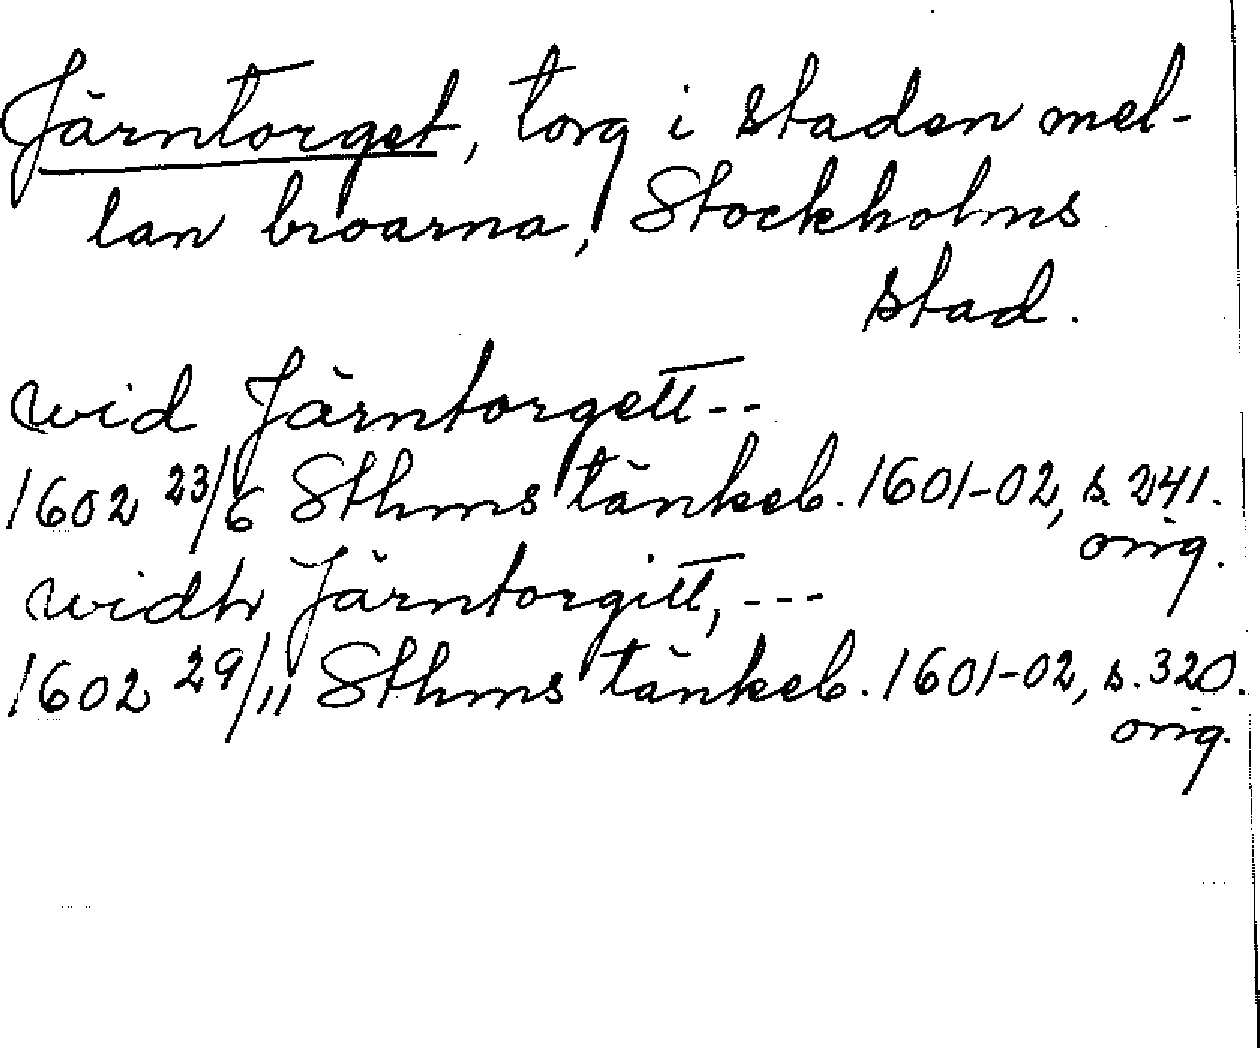 Järntorget, torg i staden mel-
lan broarna, Stockholms
stad.
wid Järntorgett--
1602 23/6 Sthms tänkeb. 1601-02, s. 241.
orig.
widh Järntorgitt, ---
1602 29/11 Sthms tänkeb. 1601-02, s. 320.
orig.